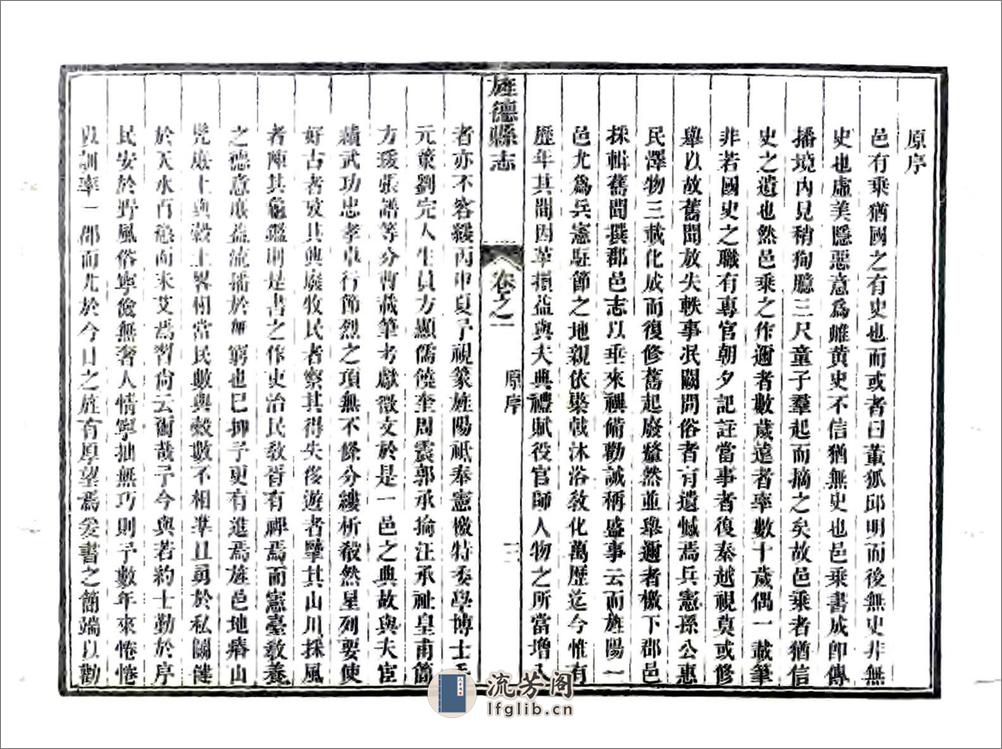 原序
邑有乘猶國之有史也而或者曰董狐邱明而後無史非無
史也虛美隱惡意爲雌黃史不信猶無史也邑乘書成卽傳
播境內見稍狥臆三尺童子羣起而摘之矣故邑乘者猶信
史之遺也然邑乘之作邇者數歲遠者率數十歲偶一載筆
非若國史之職有專官朝夕記註當事者復秦越視莫或修
舉以故舊聞放失軼事泯闕問俗者有遺憾焉兵憲孫公惠
民澤物三載化成而復修舊起廢犛然並舉邇者檄下郡邑
採輯舊聞撰郡邑志以垂來禩備勸誡稱盛事云而旌陽一
邑尤爲兵憲駐節之地親依棨戟沐浴敎化萬歷迄今惟有
歷年其間因革損益與夫典禮賦役官師人物之所當增入
旌德縣志
卷之一
原序
三
者亦不容緩丙申夏予視篆旌陽祗奉憲檄特委學博士
元董劉完人生員方顯儒饒奎周震郭承掄汪承祉皇甫節
方瑗張譜等分曹載筆考獻徵文於是一邑之典故與夫宦
績武功忠孝卓行節烈之項無不條分縷析殺然星列要使
好古者攷其興廢牧民者察其得失後遊者擥其山川採風
者陳其龜鑑則是書之作史治民敎胥有裨焉而憲臺敎養
之德意廣益流播於無窮也已抑予更有進焉旌邑地瘠山
兇磽土與穀土畧相當民數與穀數不相準且勇於私鬭健
於天水百 而未艾爲習尙云爾哉予今與若約士勤於序
民安於野風俗寧儉無奢人情寧拙無巧則予數年來惓惓
以訓率一郡而尤於今日之旌有厚望焉爰書之簡端以勸
流芳阁
lfglib.cn